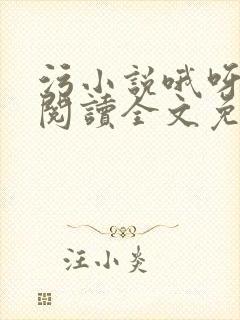 污小説哦呀
閱讀全文免
汪小炎